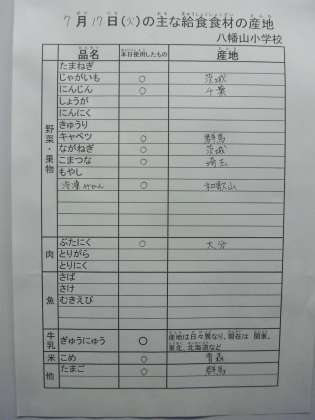 7月17日(火)の主な給食食材の産地
八幡山小学校
品名 本日使用したもの 産地
野菜・果物
たまねぎ
じゃがいも ○ 茨城
にんじん ○ 千葉
しょうが
にんにく
きゅうり
キャベツ ○ 群馬
ながねぎ ○ 茨城
こまつな ○ 埼玉
もやし
冷凍みかん ○ 和歌山
肉
ぶたにく ○ 大分
とりがら
とりにく
魚
さば
さけ
むきえび
牛乳 ぎゅうにゅう ○ 産地は日々異なり、現在は 関東、
東北、北海道など
米 こめ ○ 青森
他 たまご ○ 群馬